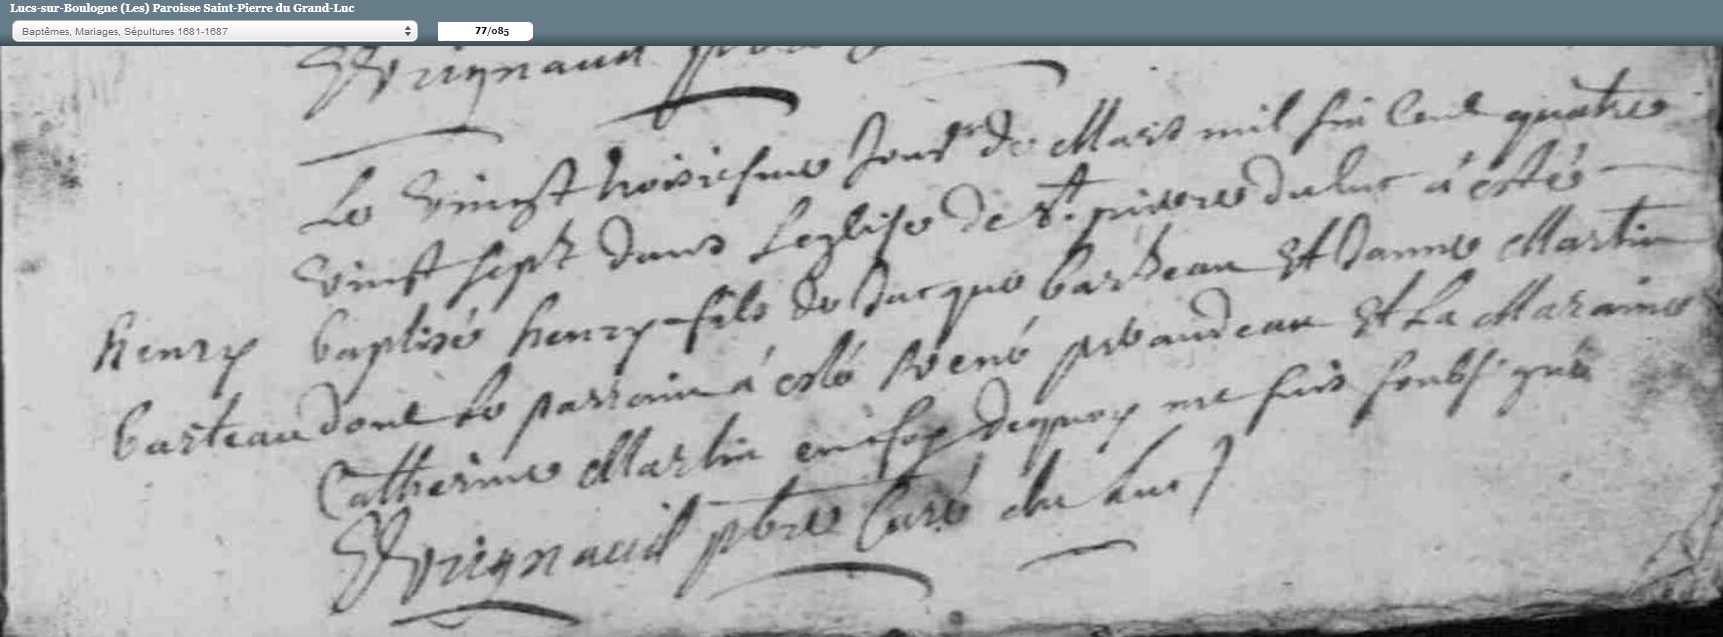 Lucs-sur-Boulogne (Les) Paroisse Saint-Pierre du Grand-Luc
Baptêmes, Mariages, Sépultures 1681-1687
77/085
Le vingt troisiesme Jour de Mars mil six Cent quatre
vingt sept dans Leglise de St. pierre du luc á esté
henry baptisé henry fils de Jacque barteau Et Janne Martin
barteau dont Le parrain á esté René Et La Maraine
Catherine Martin en foy dequoy me suis soubsigné
pbre Curé du Luc